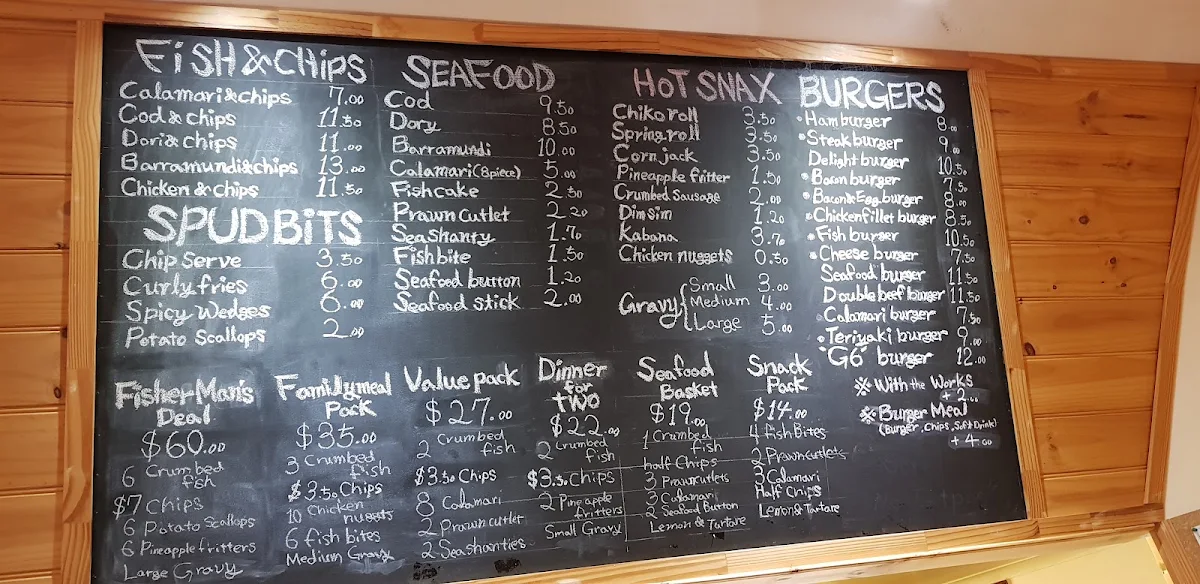 FISH & CHIPS
Calamari & chips 7.00
Cod & chips 11.50
Dori & chips 11.00
Barramundi & chips 13.00
Chicken & chips 11.50
SPUD BITS
Chip Serve 3.50
Curly fries 6.00
Spicy Wedges 6.00
Potato Scallops 2.00
SEAFOOD
Cod 9.50
Dory 8.50
Barramundi 10.00
Calamari (8 piece) 5.00
Fish cake 2.50
Prawn cutlet 2.20
Sea Shanty 1.70
Fish bite 1.50
Seafood button 1.20
Seafood stick 2.00
HOT SNAX
Chiko roll 3.50
Spring roll 3.50
Corn jack 3.50
Pineapple fritter 1.50
Crumbed Sausage 2.00
Dim sim 1.20
Kabana 3.70
Chicken nuggets 0.50
Gravy { Small 3.00
Medium 4.00
Large 5.00
BURGERS
• Ham burger 8.00
• Steak burger 9.00
Delight burger 10.50
• Bacon burger 7.50
• Bacon & Egg burger 8.00
• Chicken fillet burger 8.50
• Fish burger 10.50
• Cheese burger 7.50
Seafood burger 11.50
Double beef burger 11.50
Calamari burger 7.50
• Teriyaki burger 9.00
"G6" burger 12.00
※ With the Works
+ 2.00
※ Burger Meal
(Burger, Chips, Soft Drink)
+ 4.00
Fisher Man's
Deal
$60.00
6 Crumbed
fish
$7 Chips
6 Potato Scallops
6 Pineapple fritters
Large Gravy
Family meal
Pack
$35.00
3 Crumbed
fish
$3.50 Chips
10 Chicken
nuggets
6 fish bites
Medium Gravy
Value pack
$27.00
2 Crumbed
fish
$3.50 Chips
8 Calamari
2 Prawn cutlet
2 Seashanties
Dinner
for
TWO
$22.00
2 Crumbed
fish
$3.50 Chips
2 Pineapple
fritters
Small Gravy
Seafood
Basket
$19.00
1 Crumbed
fish
half Chips
3 Prawn cutlets
3 Calamari
2 Seafood Button
Lemon & Tartare
Snack
Pack
$14.00
4 fish Bites
2 Prawn cutlets
3 Calamari
Half Chips
Lemon & Tartare